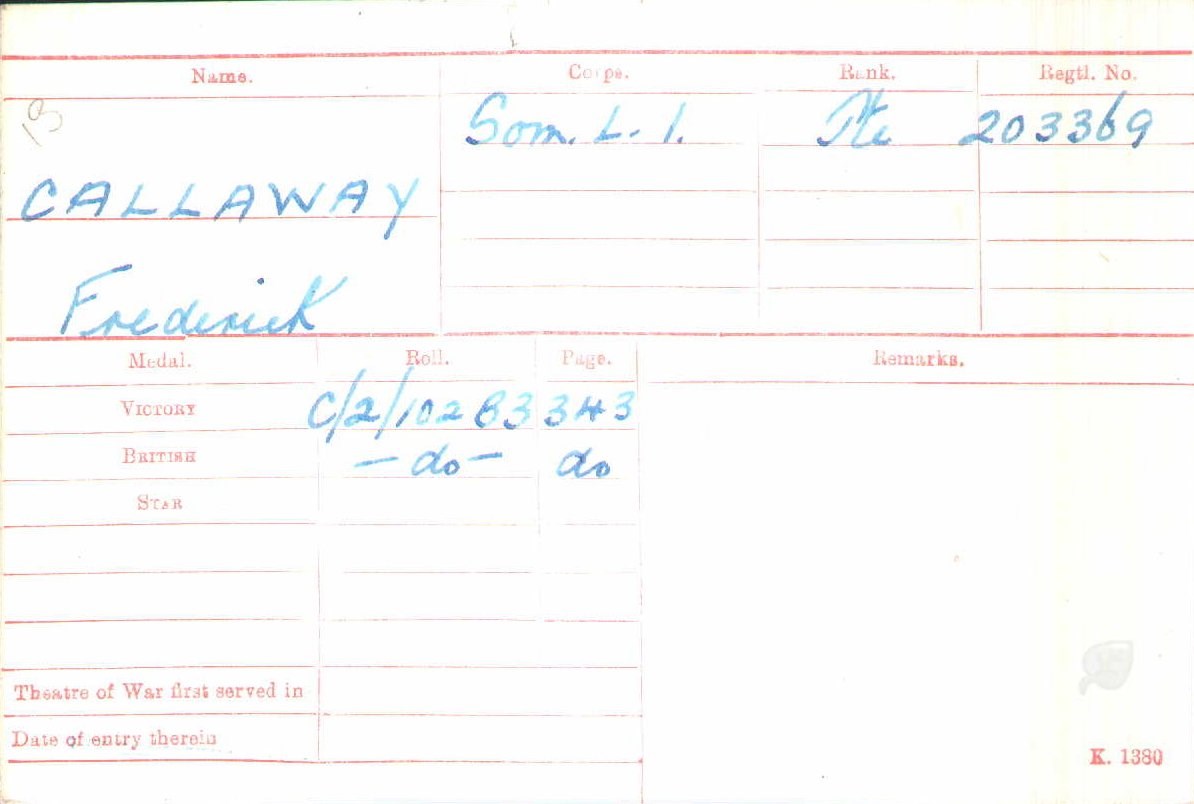 Name. Corps. Rank. Regtl. No.
B Som. L. I. Pte 203369
CALLAWAY
Frederick
Medal. Roll. Page. Remarks.
VICTORY C/2/102B3 343
BRITISH - do - do
STAR
Theatre of War first served in
Date of entry therein
K. 1380